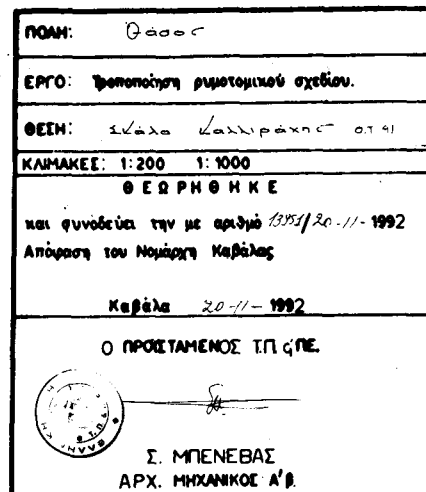 ΠΟΛΗ: Θάσος
ΕΡΓΟ: Τροποποίηση ρυμοτομικού σχεδίου.
ΘΕΣΗ: Σκάλα Καλλιράχης Ο.Τ 41
ΚΛΙΜΑΚΕΣ: 1:200 1:1000
ΘΕΩΡΗΘΗΚΕ
και συνοδεύει την με αριθμό 20-11-1992
Απόφαση του Νομάρχη Καβάλας
Καβάλα 20-11-1992
Ο ΠΡΟΪΣΤΑΜΕΝΟΣ Τ.Π. & ΠΕ.
Σ. ΜΠΕΝΕΒΑΣ
ΑΡΧ. ΜΗΧΑΝΙΚΟΣ Α'β.